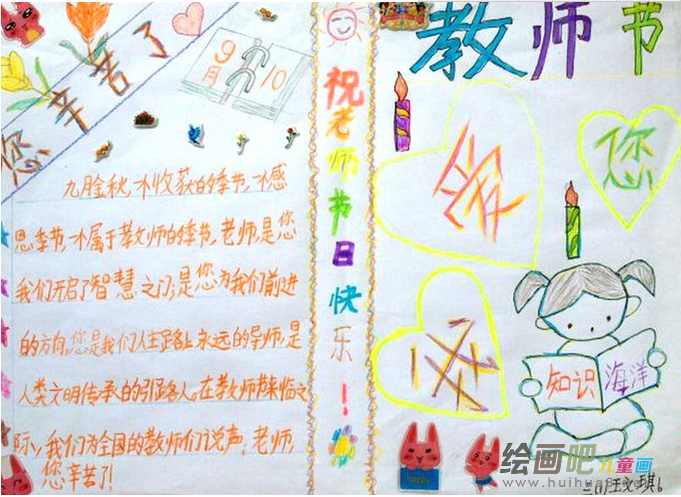 您辛苦了
9月
10
祝老师节日快乐!
教师节
您
九月金秋,一个收获的季节,一个感
恩季节,一个属于教师的季节,老师,是您
我们开启了智慧之门;是您为我们前进
的方向,您是我们人生路上永远的导师,是
人类文明传承的引路人。在教师节来临之
际,我们为全国的教师们说声:老师,
您辛苦了!
知识海洋
happy
绘画吧儿童画